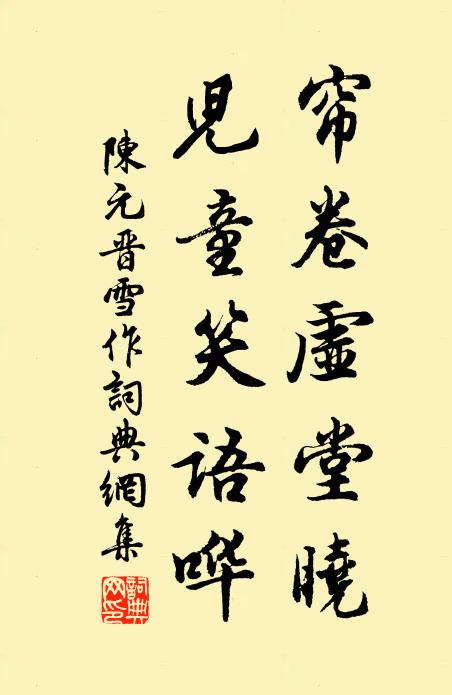 帘卷虛堂曉
兒童笑語哗
陳元晋雪作詞典網集
詞典網印